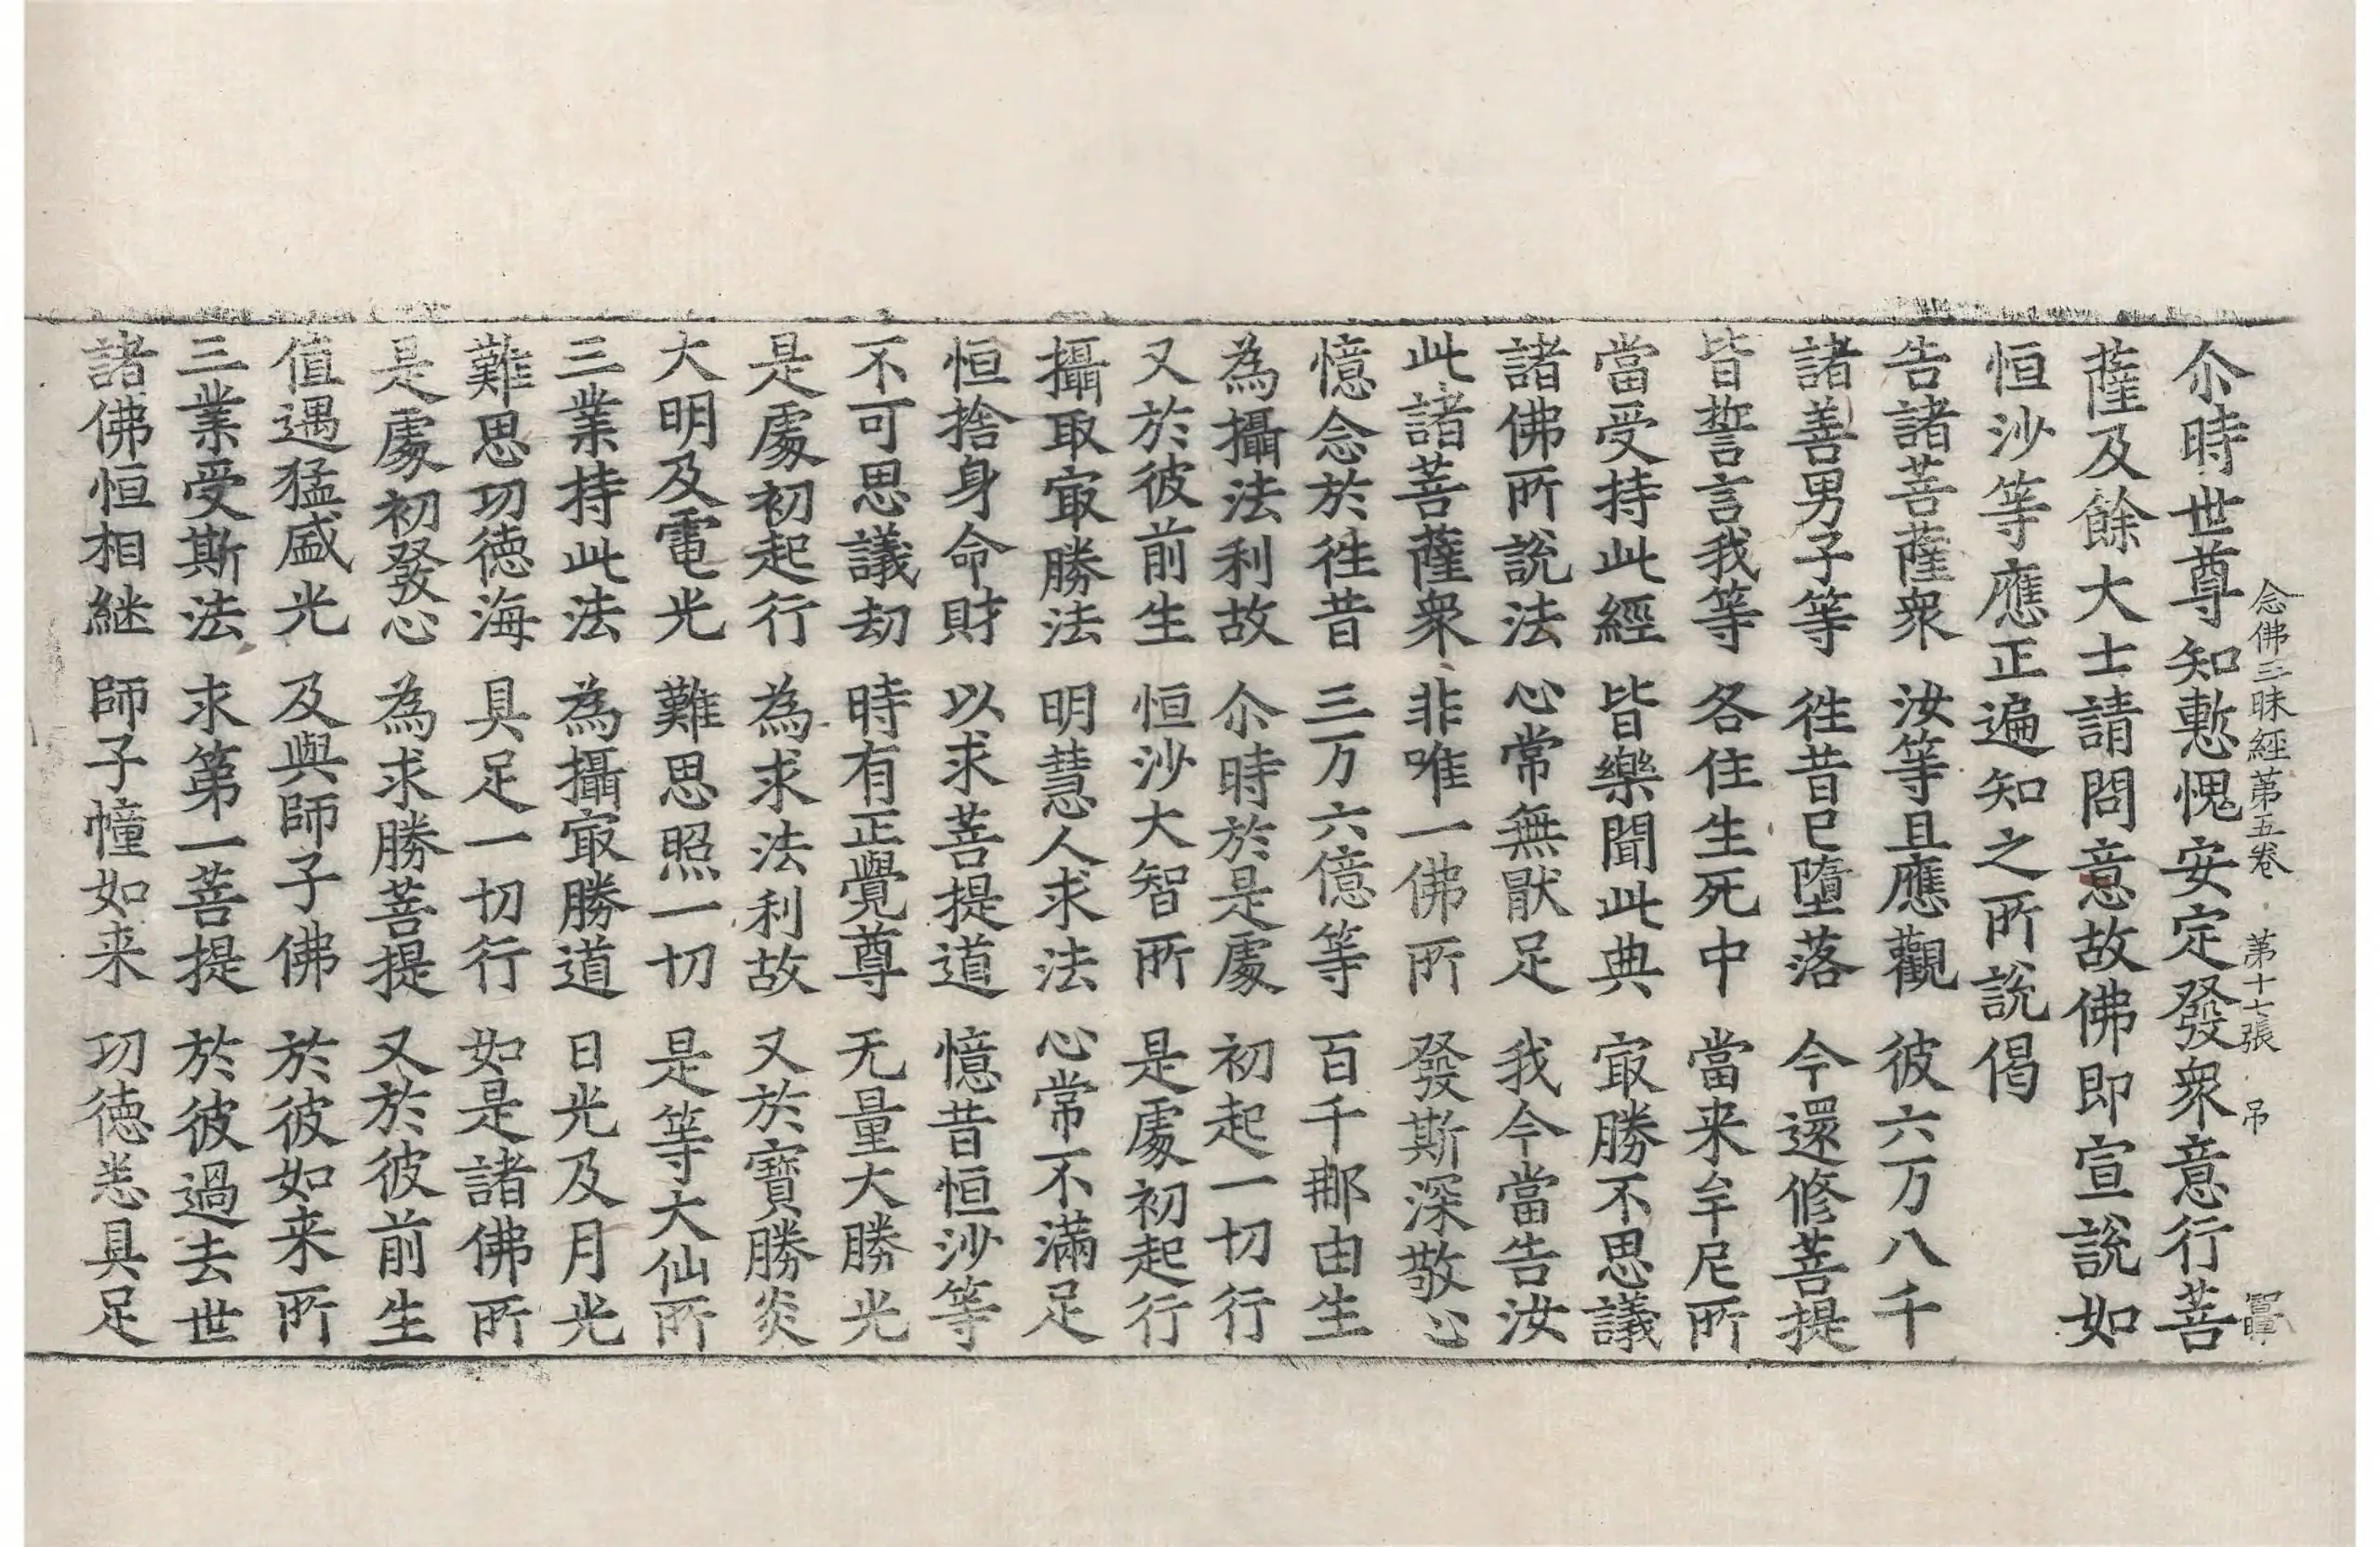 念佛三昧經第五卷 第十七張 弔
尒時世尊知慙愧安定發衆意行菩
薩及餘大士請問意故佛即宣說如
恒沙等應正遍知之所說偈
告諸菩薩衆 汝等且應觀 彼六万八千
諸善男子等 徃昔已墮落 今還修菩提
皆誓言我等 各住生死中 當来牟尼所
當受持此經 皆樂聞此典 㝡勝不思議
諸佛所說法 心常無猒足 我今當告汝
此諸菩薩衆 非唯一佛所 發斯深敬心
憶念於徃昔 三万六億等 百千那由生
為攝法利故 尒時於是處 初起一切行
又於彼前生 恒沙大智所 是處初起行
攝取㝡勝法 明慧人求法 心常不滿足
恒捨身命財 以求菩提道 憶昔恒沙等
不可思議劫 時有正覺尊 无量大勝光
是處初起行 為求法利故 又於寶勝炎
大明及電光 難思照一切 是等大仙所
三業持此法 為攝㝡勝道 日光及月光
難思功德海 具足一切行 如是諸佛所
是處初發心 為求勝菩提 又於彼前生
值遇猛盛光 及與師子佛 於彼如来所
三業受斯法 求第一菩提 於彼過去世
諸佛恒相継 師子幢如来 功德悉具足